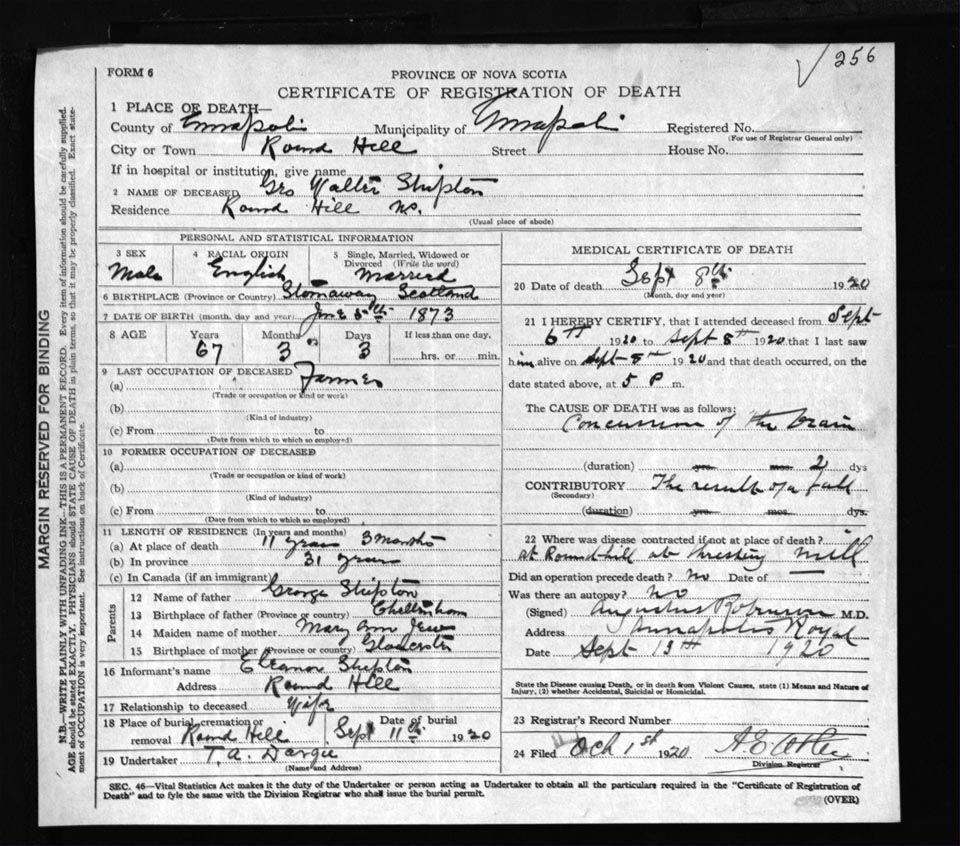 256
FORM 6
PROVINCE OF NOVA SCOTIA
CERTIFICATE OF REGISTRATION OF DEATH
1 PLACE OF DEATH—
County of Annapolis Municipality of Annapolis Registered No.
(For use of Registrar General only)
City or Town Round Hill Street House No.
If in hospital or institution, give name
2 NAME OF DECEASED Geo Walter Shipton
Residence Round Hill NS.
(Usual place of abode)
PERSONAL AND STATISTICAL INFORMATION
3 SEX Male
4 RACIAL ORIGIN English
5 Single, Married, Widowed or Divorced (Write the word) Married
6 BIRTHPLACE (Province or Country) Stornaway Scotland
7 DATE OF BIRTH (month, day and year) June 5th 1873
8 AGE Years 67 Months 3 Days 3 If less than one day, hrs. or min.
9 LAST OCCUPATION OF DECEASED Farmer
(a)
(Trade or occupation or kind or work)
(b)
(Kind of industry)
(c) From to
(Date from which to which so employed)
10 FORMER OCCUPATION OF DECEASED
(a)
(Trade or occupation or kind of work)
(b)
(Kind of industry)
(c) From to
(Date from which to which so employed)
11 LENGTH OF RESIDENCE (In years and months)
(a) At place of death 11 years 3 months
(b) In province 31 years
(c) In Canada (if an immigrant)
Parents
12 Name of father George Shipton
13 Birthplace of father (Province or country) Cheltenham
14 Maiden name of mother Mary Ann
15 Birthplace of mother (Province or country) Gloucester
16 Informant's name Eleanor Shipton
Address Round Hill
17 Relationship to deceased Wife
18 Place of burial, cremation or removal Round Hill Date of burial Sept 11th 1920
19 Undertaker T. A. Dargie
(Name and Address)
MEDICAL CERTIFICATE OF DEATH
20 Date of death Sept 8th 1920
(Month, day and year)
21 I HEREBY CERTIFY, that I attended deceased from Sept
6th 1920 to Sept 8th 1920 that I last saw
him alive on Sept 8th 1920 and that death occurred, on the
date stated above, at 5 P m.
The CAUSE OF DEATH was as follows:
Concussion of the brain
(duration) yrs. mos. 2 dys
CONTRIBUTORY The result of a fall
(Secondary)
(duration) yrs. mos. dys.
22 Where was disease contracted if not at place of death?
at Roundhill at threshing mill
Did an operation precede death? No Date of —
Was there an autopsy? No
(Signed) Augustus Robinson M.D.
Address Annapolis Royal
Date Sept 13th 1920
State the Disease causing Death, or in death from Violent Causes, state (1) Means and Nature of
Injury, (2) whether Accidental, Suicidal or Homicidal.
23 Registrar's Record Number
24 Filed Oct 1st 1920
Division Registrar
SEC. 46—Vital Statistics Act makes it the duty of the Undertaker or person acting as Undertaker to obtain all the particulars required in the "Certificate of Registration of
Death" and to fyle the same with the Division Registrar who shall issue the burial permit.
(OVER)
MARGIN RESERVED FOR BINDING
N.B.—WRITE PLAINLY WITH UNFADING INK—THIS IS A PERMANENT RECORD. Every item of information should be carefully supplied.
AGE should be stated EXACTLY. PHYSICIANS should STATE CAUSE OF DEATH in plain terms, so that it may be properly classified. Exact state-
ment of OCCUPATION is very important. See instructions on back of Certificate.